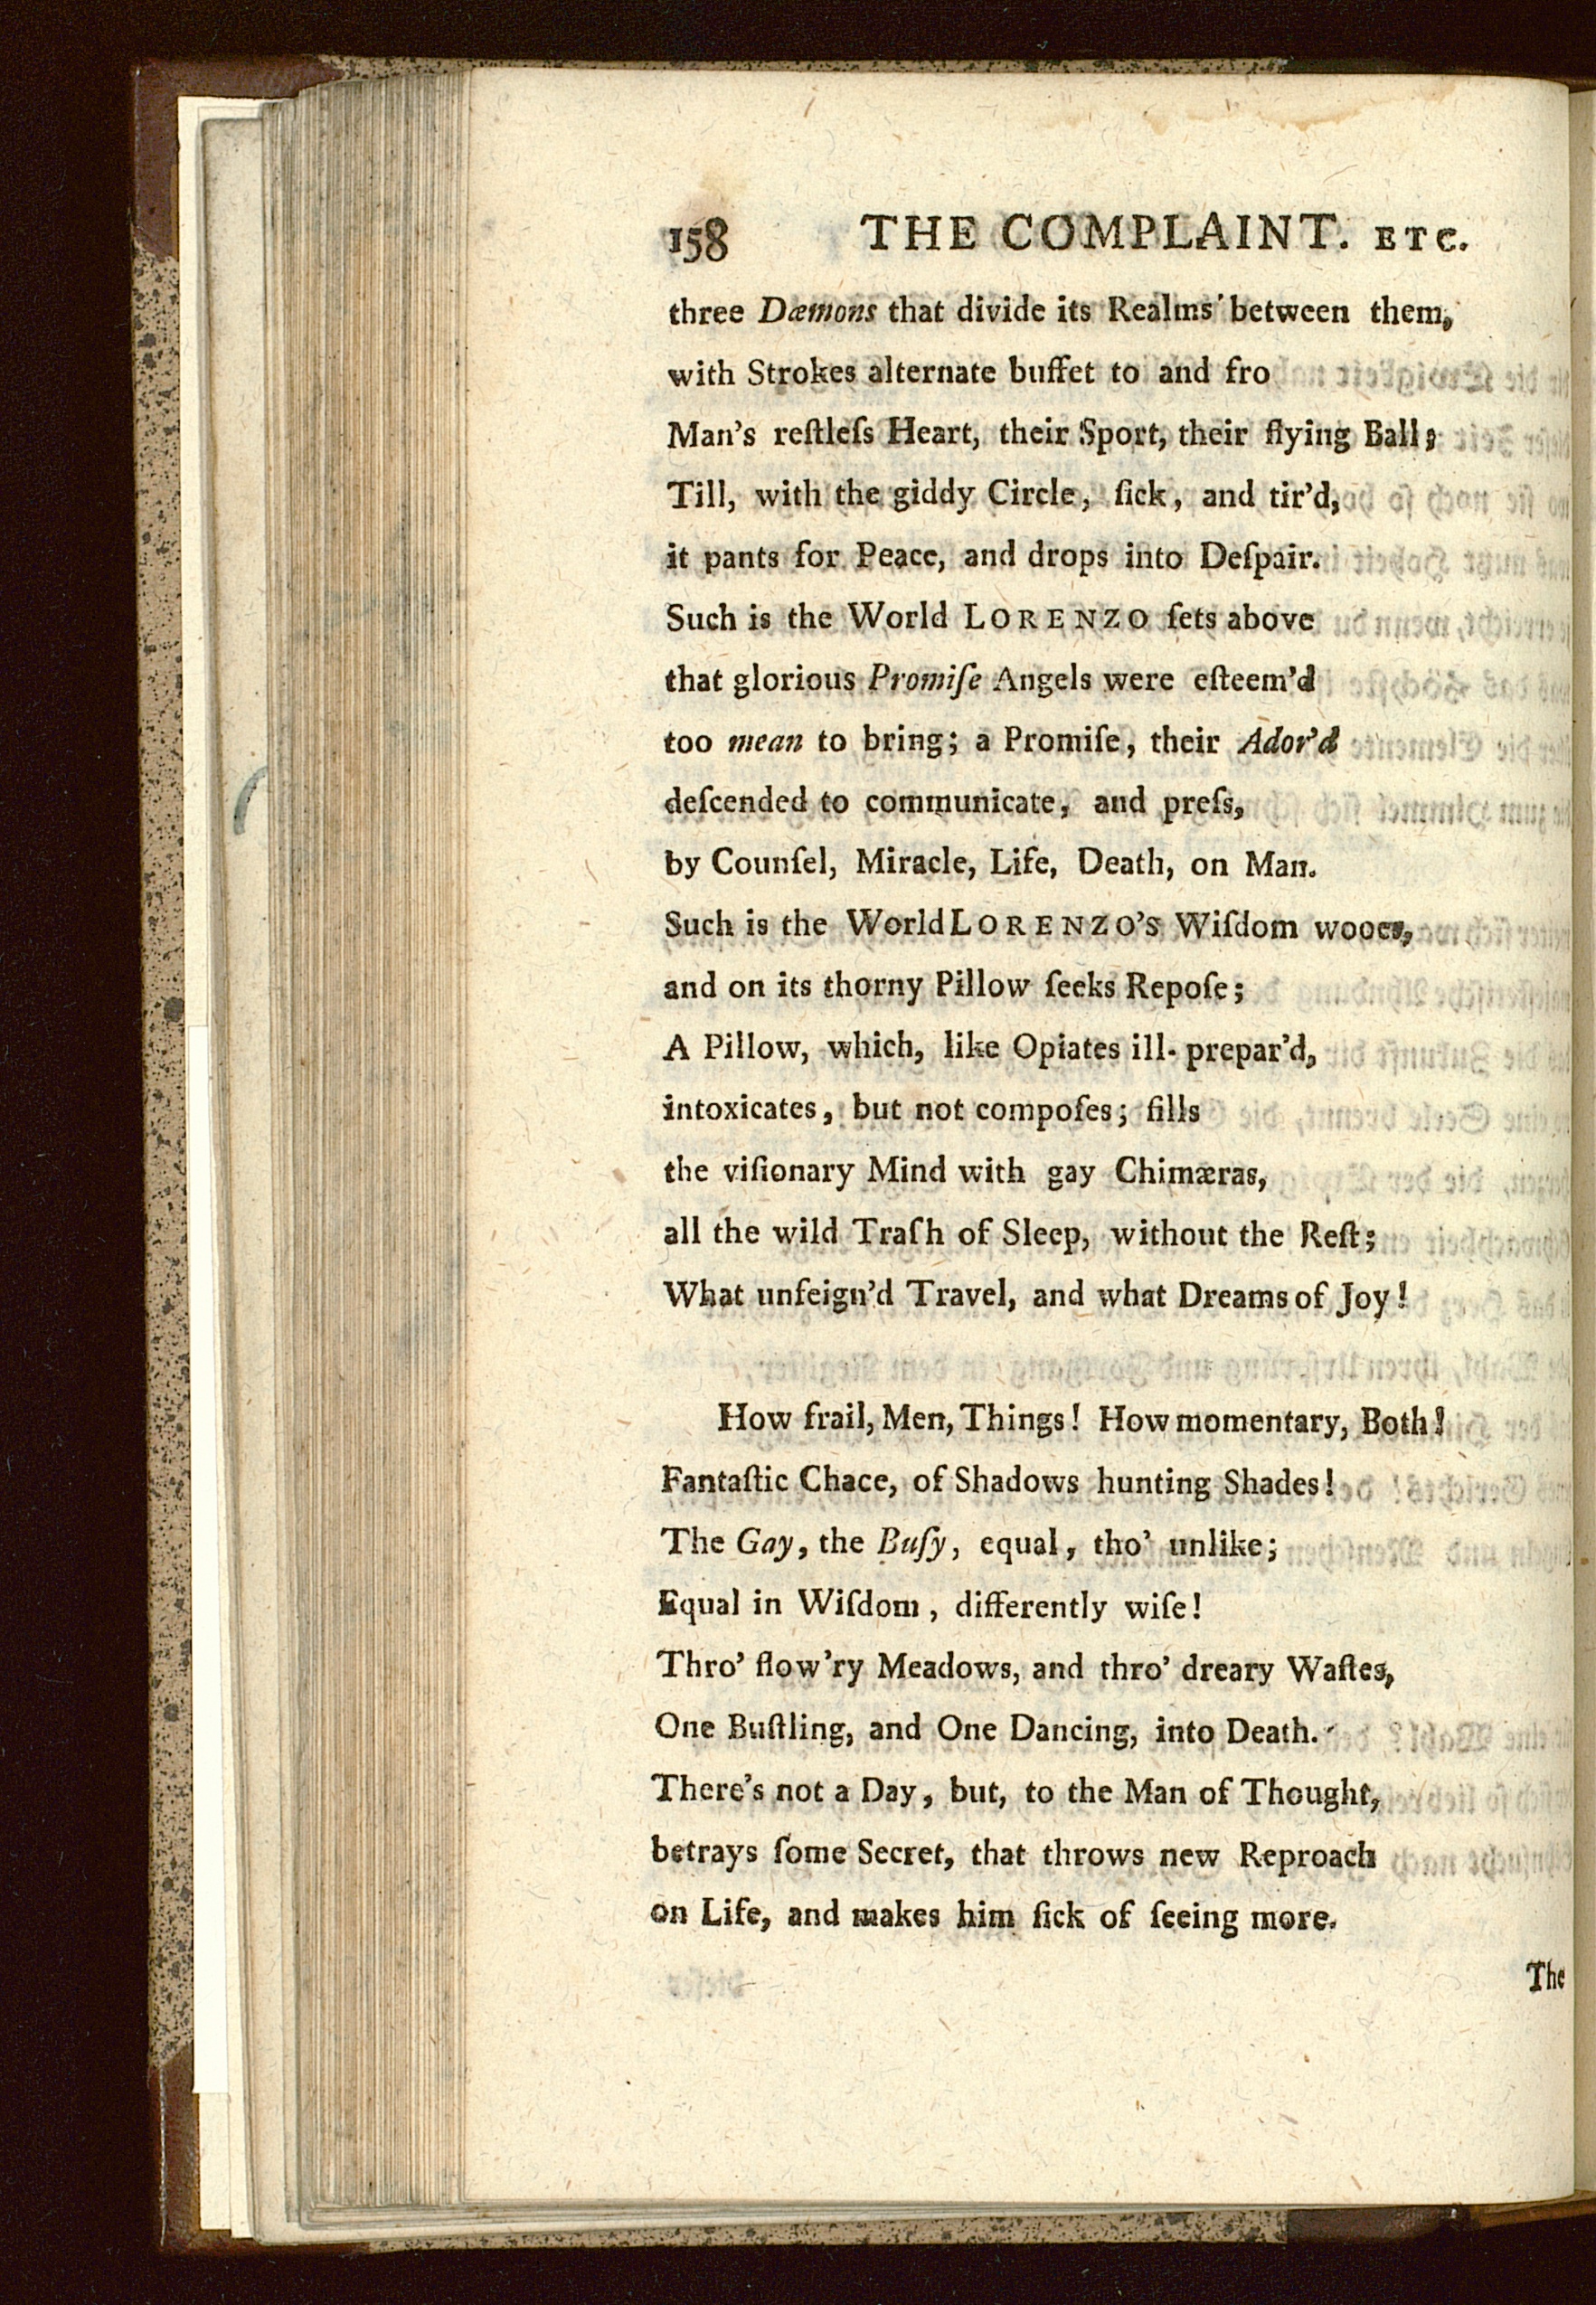 158 THE COMPLAINT. ETC.
three Dæmons that divide its Realms between them,
with Strokes alternate buffet to and fro
Man's reſtleſs Heart, their Sport, their flying Ball;
Till, with the giddy Circle, ſick, and tir'd,
it pants for Peace, and drops into Deſpair.
Such is the World LORENZO ſets above
that glorious Promiſe Angels were eſteem'd
too mean to bring; a Promiſe, their Ador'd
deſcended to communicate, and preſs,
by Counſel, Miracle, Life, Death, on Man.
Such is the World LORENZO'S Wiſdom wooes,
and on its thorny Pillow ſeeks Repoſe;
A Pillow, which, like Opiates ill-prepar'd,
intoxicates, but not compoſes; fills
the viſionary Mind with gay Chimæras,
all the wild Traſh of Sleep, without the Reſt;
What unfeign'd Travel, and what Dreams of Joy!
How frail, Men, Things! How momentary, Both!
Fantaſtic Chace, of Shadows hunting Shades!
The Gay, the Buſy, equal, tho' unlike;
Equal in Wiſdom, differently wiſe!
Thro' flow'ry Meadows, and thro' dreary Waſtes,
One Buſtling, and One Dancing, into Death.
There's not a Day, but, to the Man of Thought,
betrays ſome Secret, that throws new Reproach
on Life, and makes him ſick of ſeeing more.
The